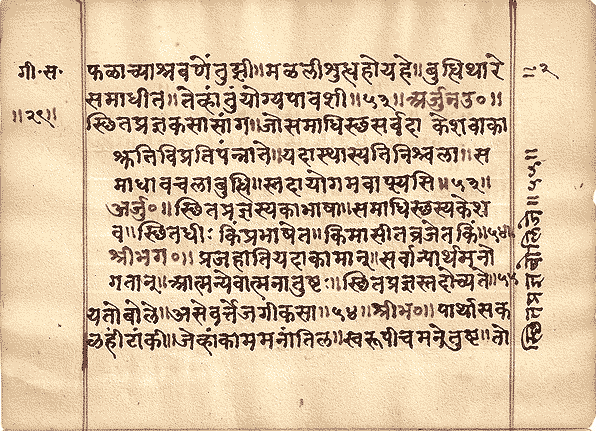 गी॰स॰
॥२९॥
फळाच्याश्रवणें तुझी॥मळलीशुद्धहोयहे॥बुद्धिथारे
समाधीत॥तेव्हांतुंयोग्यपावशी॥५३॥अर्जुनउ०॥
स्छितप्रज्ञकसासांग॥जोसमाधिस्छसर्वदा केशवाका
श्रुतिविप्रतिपंन्नाते॥यदास्थास्यतिनिश्चला॥स
माधावचलाबुद्धि॥स्तदायोगमवाप्स्यसि॥५३॥
अर्जु०॥स्छितप्रज्ञस्यकाभाषा॥समाधिस्छस्यकेश
व॥स्छितधीः किंप्रभाषेत॥किमासीतव्रजेतकिं॥५४॥
श्रीभग०॥प्रजहातियदाकामान्॥सर्वान्पार्थमनो
गतान्॥आत्मन्येवात्मनातुष्टः॥स्छितप्रज्ञस्तदोच्यते॥५५
यतोबोले॥असेवर्त्तेजगीकसा॥५४॥श्रीभ०॥पार्थासक
ळहीटाकी॥जेव्हांकाममनांतिल॥स्वरूपीचमनेतुष्ट॥तो
॥२
स्छितप्रज्ञबोलिजे॥५५॥